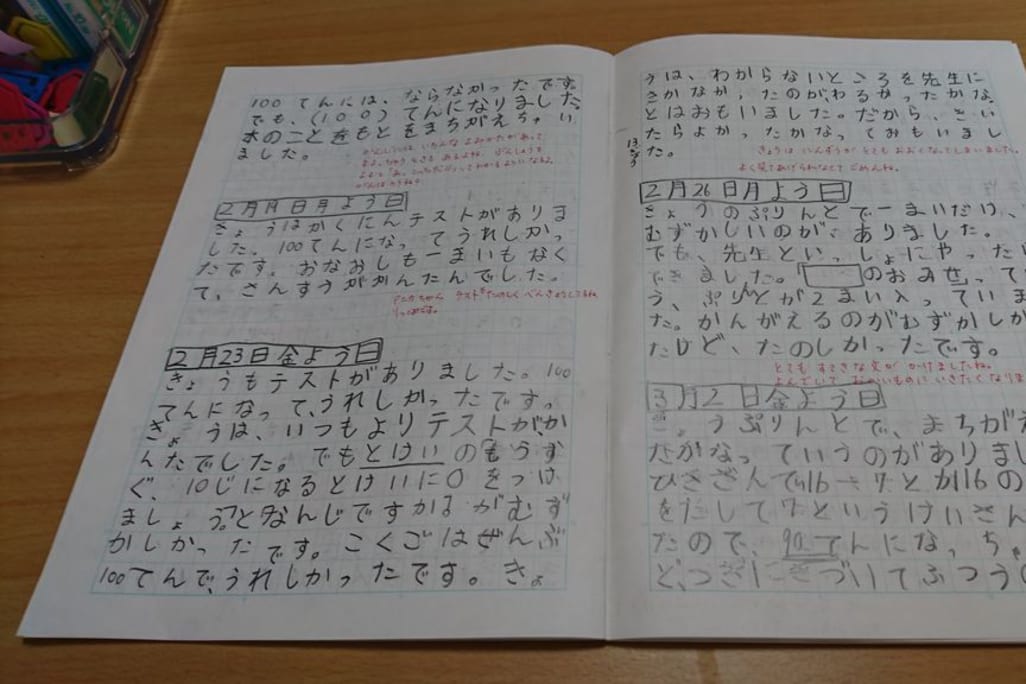 100てんには、ならなかったです。
でも、(100)てんになりました。
本のことをもとをまちがえちゃい
ました。
2月19日月よう日
きょうはかくにんテストがありま
した。100てんになってうれしかっ
たです。おなおしも一まいもなく
て、さんすうがかんたんでした。
テストもたのしくべんきょうしてるね
りっぱです。
2月23日金よう日
きょうもテストがありました。100
てんになって、うれしかったです。
きょうは、いつもよりテストが、か
んたでした。でもとけいのもうす
ぐ、10じになるとけいに○をつけ
ましょう。とかなんじですかるがむず
かしかったです。こくごはぜんぶ
100てんで、うれしかったです。きょ
うは、わからないところを先生に
きかなかったのが、わるかったかな、
とはおもいました。だから、きい
たらよかったかなっておもいまし
た。
きょうはいんずうがとてもおおくなってしまいました。
よく見てあげられなくてごめんね。
2月26日月よう日
きょうのぷりんとで一まいだけ、
むずかしいのが、ありました。
でも、先生といっしょにやったり
できました。
のおみせってい
う、ぷりんとが2まい入っていま
た。かんがえるのがむずかしか
たけど、たのしかったです。
とてもすてきな文がかけましたね。
よんでいておかいものにいきたくなりま
3月2日金よう日
うぷりんとで、まちがえ
たかなっていうのがありまし
ひきざんで16-7とか16の
をたして7というけいさん
たので、90てんになっちゃ
ど、つぎにきづいてふつうの